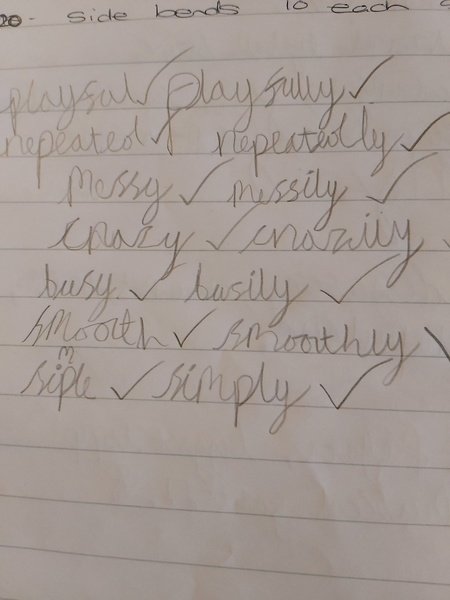 - side bends 10 each
playful playfully
repeated repeatedly
messy messily
crazy crazily
busy. busily
smooth smoothly
m
siple simply